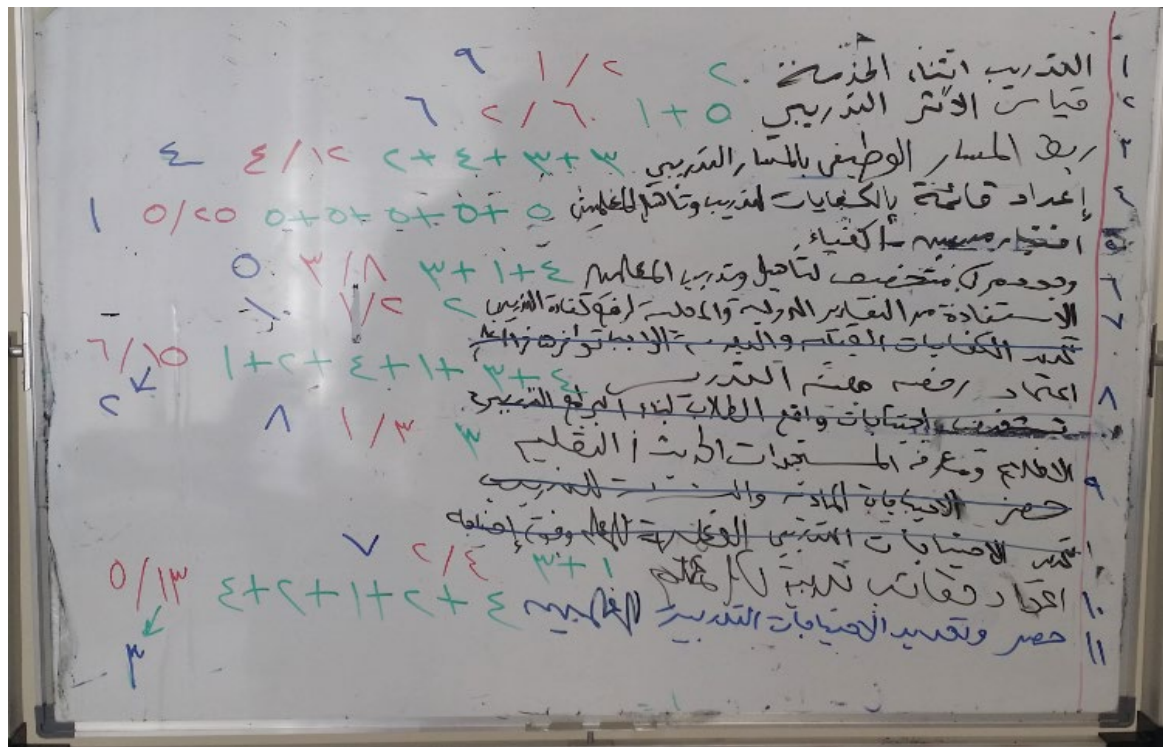 ١ التدريب اثناء الخدمة . ٢ ٢/١ ٩
٢ قياس الأثر التدريبي ٥+١ ٦/٢ ٦
٣ ربط المسار الوظيفي بالمسار التدريبي ٣+٣+٤+٢ ١٢/٤ ٤
٤ إعداد قائمة بالكفايات لتدريب وتأهيل المعلمين ٥+٥+٥+٥+٥ ٢٥/٥ ١
٥ اختيار مدربين أكفياء
٦ وجود مركز متخصص لتأهيل وتدريب المعلمين ٤+١+٣ ٨/٣ ٥
٧ الاستفادة من التقارير الدولية والمحلية لرفع كفاءة التدريب ٢ ٢/١
تحديد الكفايات
٨ اعتماد رخصة مهنة التدريب ٤+٣+١+٤+٢+١ ١٥/٦ ٢
احتياجات واقع الطلاب لبناء البرامج التدريبية
٩ ومعرفة المستجدات الحديثة في التعليم ٣ ٣/١ ٨
حصر الاحتياجات المادية للتدريب
تحديد الاحتياجات
١٠ اعتماد حقائب تدريبية ١+٣ ٤/٢ ٧
١١ حصر وتحديد الاحتياجات التدريبية ٤+٢+١+٢+٤ ١٣/٥ ٣